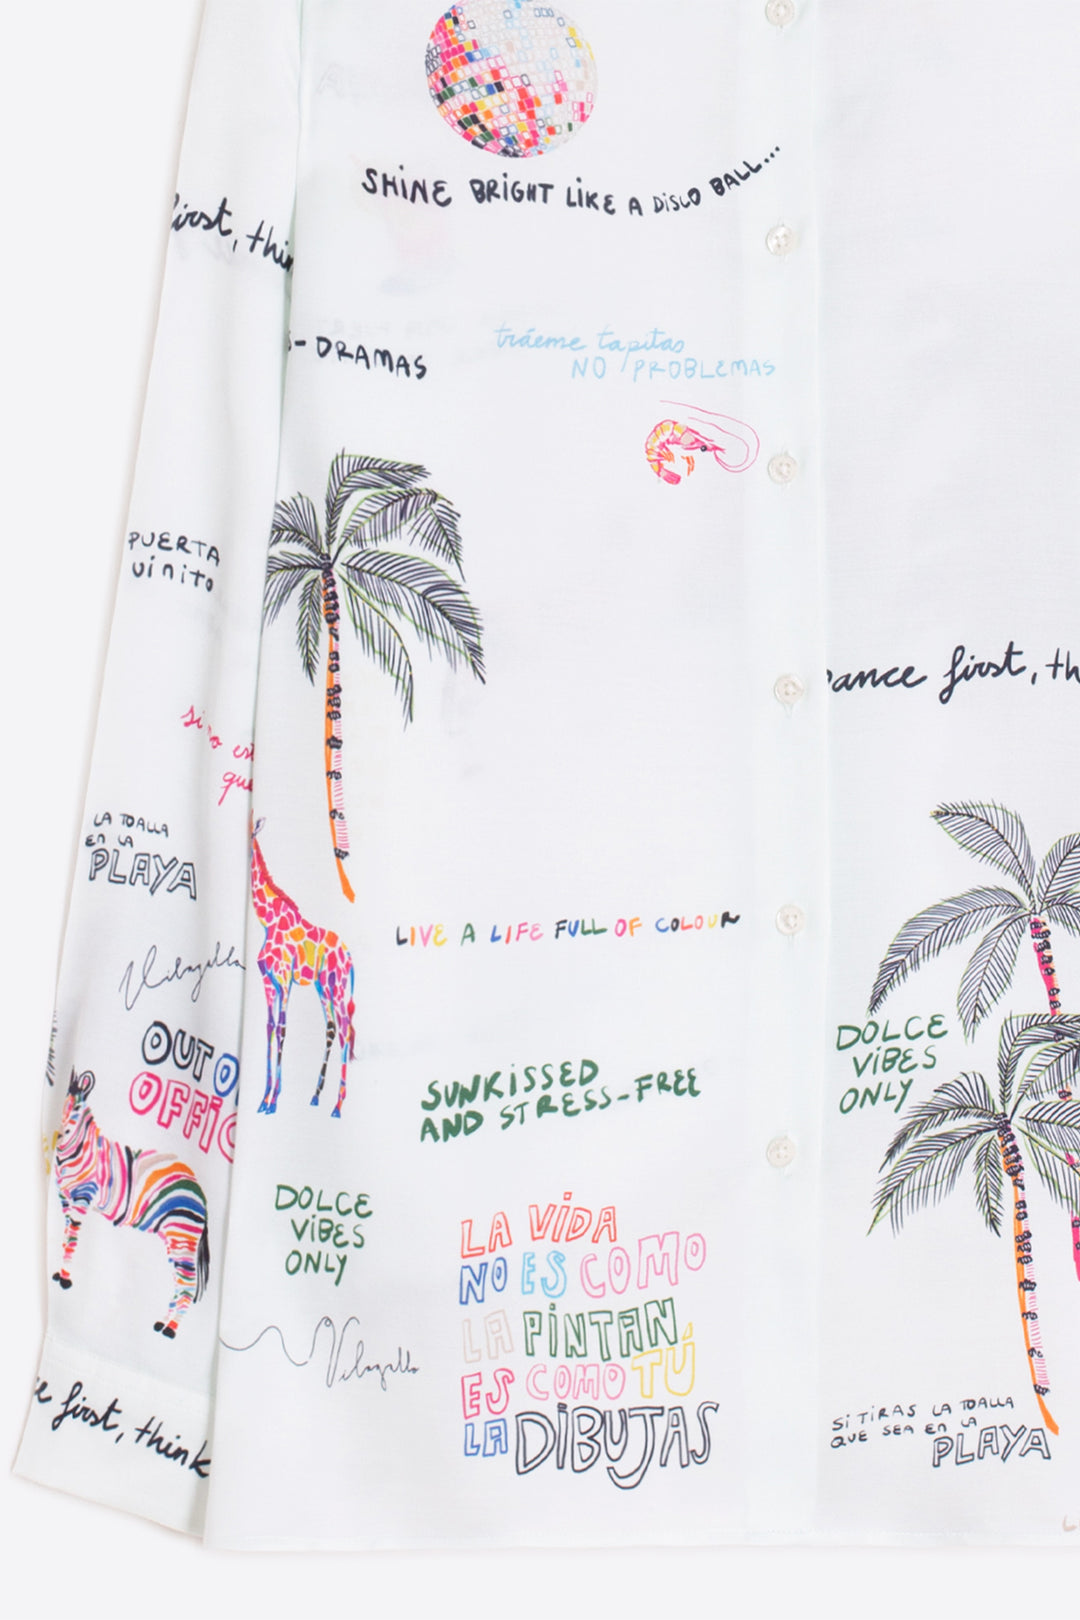 SHINE BRIGHT LIKE A DISCO BALL...
first, thin
- DRAMAS
tráeme tapitas
NO PROBLEMAS
PUERTA
vinito
ance first, th
si no est
que
LA TOALLA
EN LA
PLAYA
LIVE A LIFE FULL OF COLOUR
Vilagallo
OUT O
OFFIC
DOLCE
VIBES
ONLY
SUNKISSED
AND STRESS-FREE
DOLCE
VIBES
ONLY
LA VIDA
NO ES COMO
LA PINTAN,
ES COMO TÚ
LA DIBUJAS
Vilagallo
e first, think
SI TIRAS LA TOALLA
QUE SEA EN LA
PLAYA